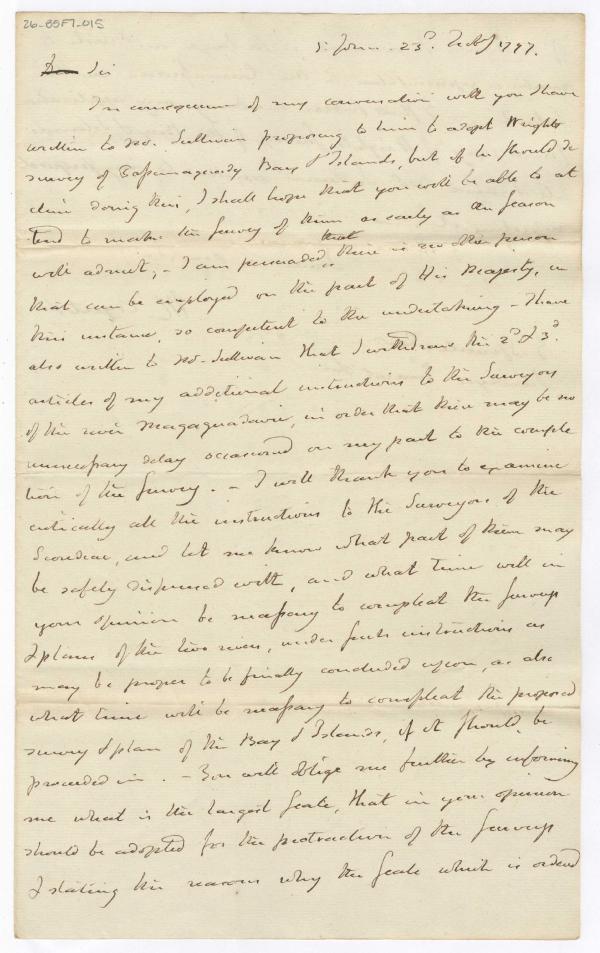 26-85F7-015
St John 23d. Feby 1797.
Dear Sir
In consequence of my conversation with you I have
written to Mr. Sullivan proposing to him to adopt Wrights
survey of Passamaquody Bay & Islands, but if he should de
cline doing this, I shall hope that you will be able to at
tend to make the Survey of them as early as the season
will admit, - I am persuaded that there is no other person
that can be employed on the part of His Majesty, in
this instance, so competent to the undertaking - I have
also written to Mr. Sullivan that I withdraw the 2d & 3d.
articles of my additional instructions to the Surveyors
of the river Magaguadavic, in order that there may be no
unnecessary delay occasioned on my part to the comple
tion of the Survey. - I will thank you to examine
critically all the instructions to the Surveyors of the
Scoudiac, and let me know what part of them may
be safely dispensed with, and what time will in
your opinion be necessary to compleat the Surveys
& plans of the two rivers, under such instructions as
may be proper to be finally concluded upon, as also
what time will be necessary to compleat the proposed
survey & plan of the Bay & Islands, if it should be
proceeded in. - You will oblige me further by informing
me what is the largest Scale, that in your opinion
should be adopted for the protraction of the Surveys
& stating the reasons why the Scale which is ordered